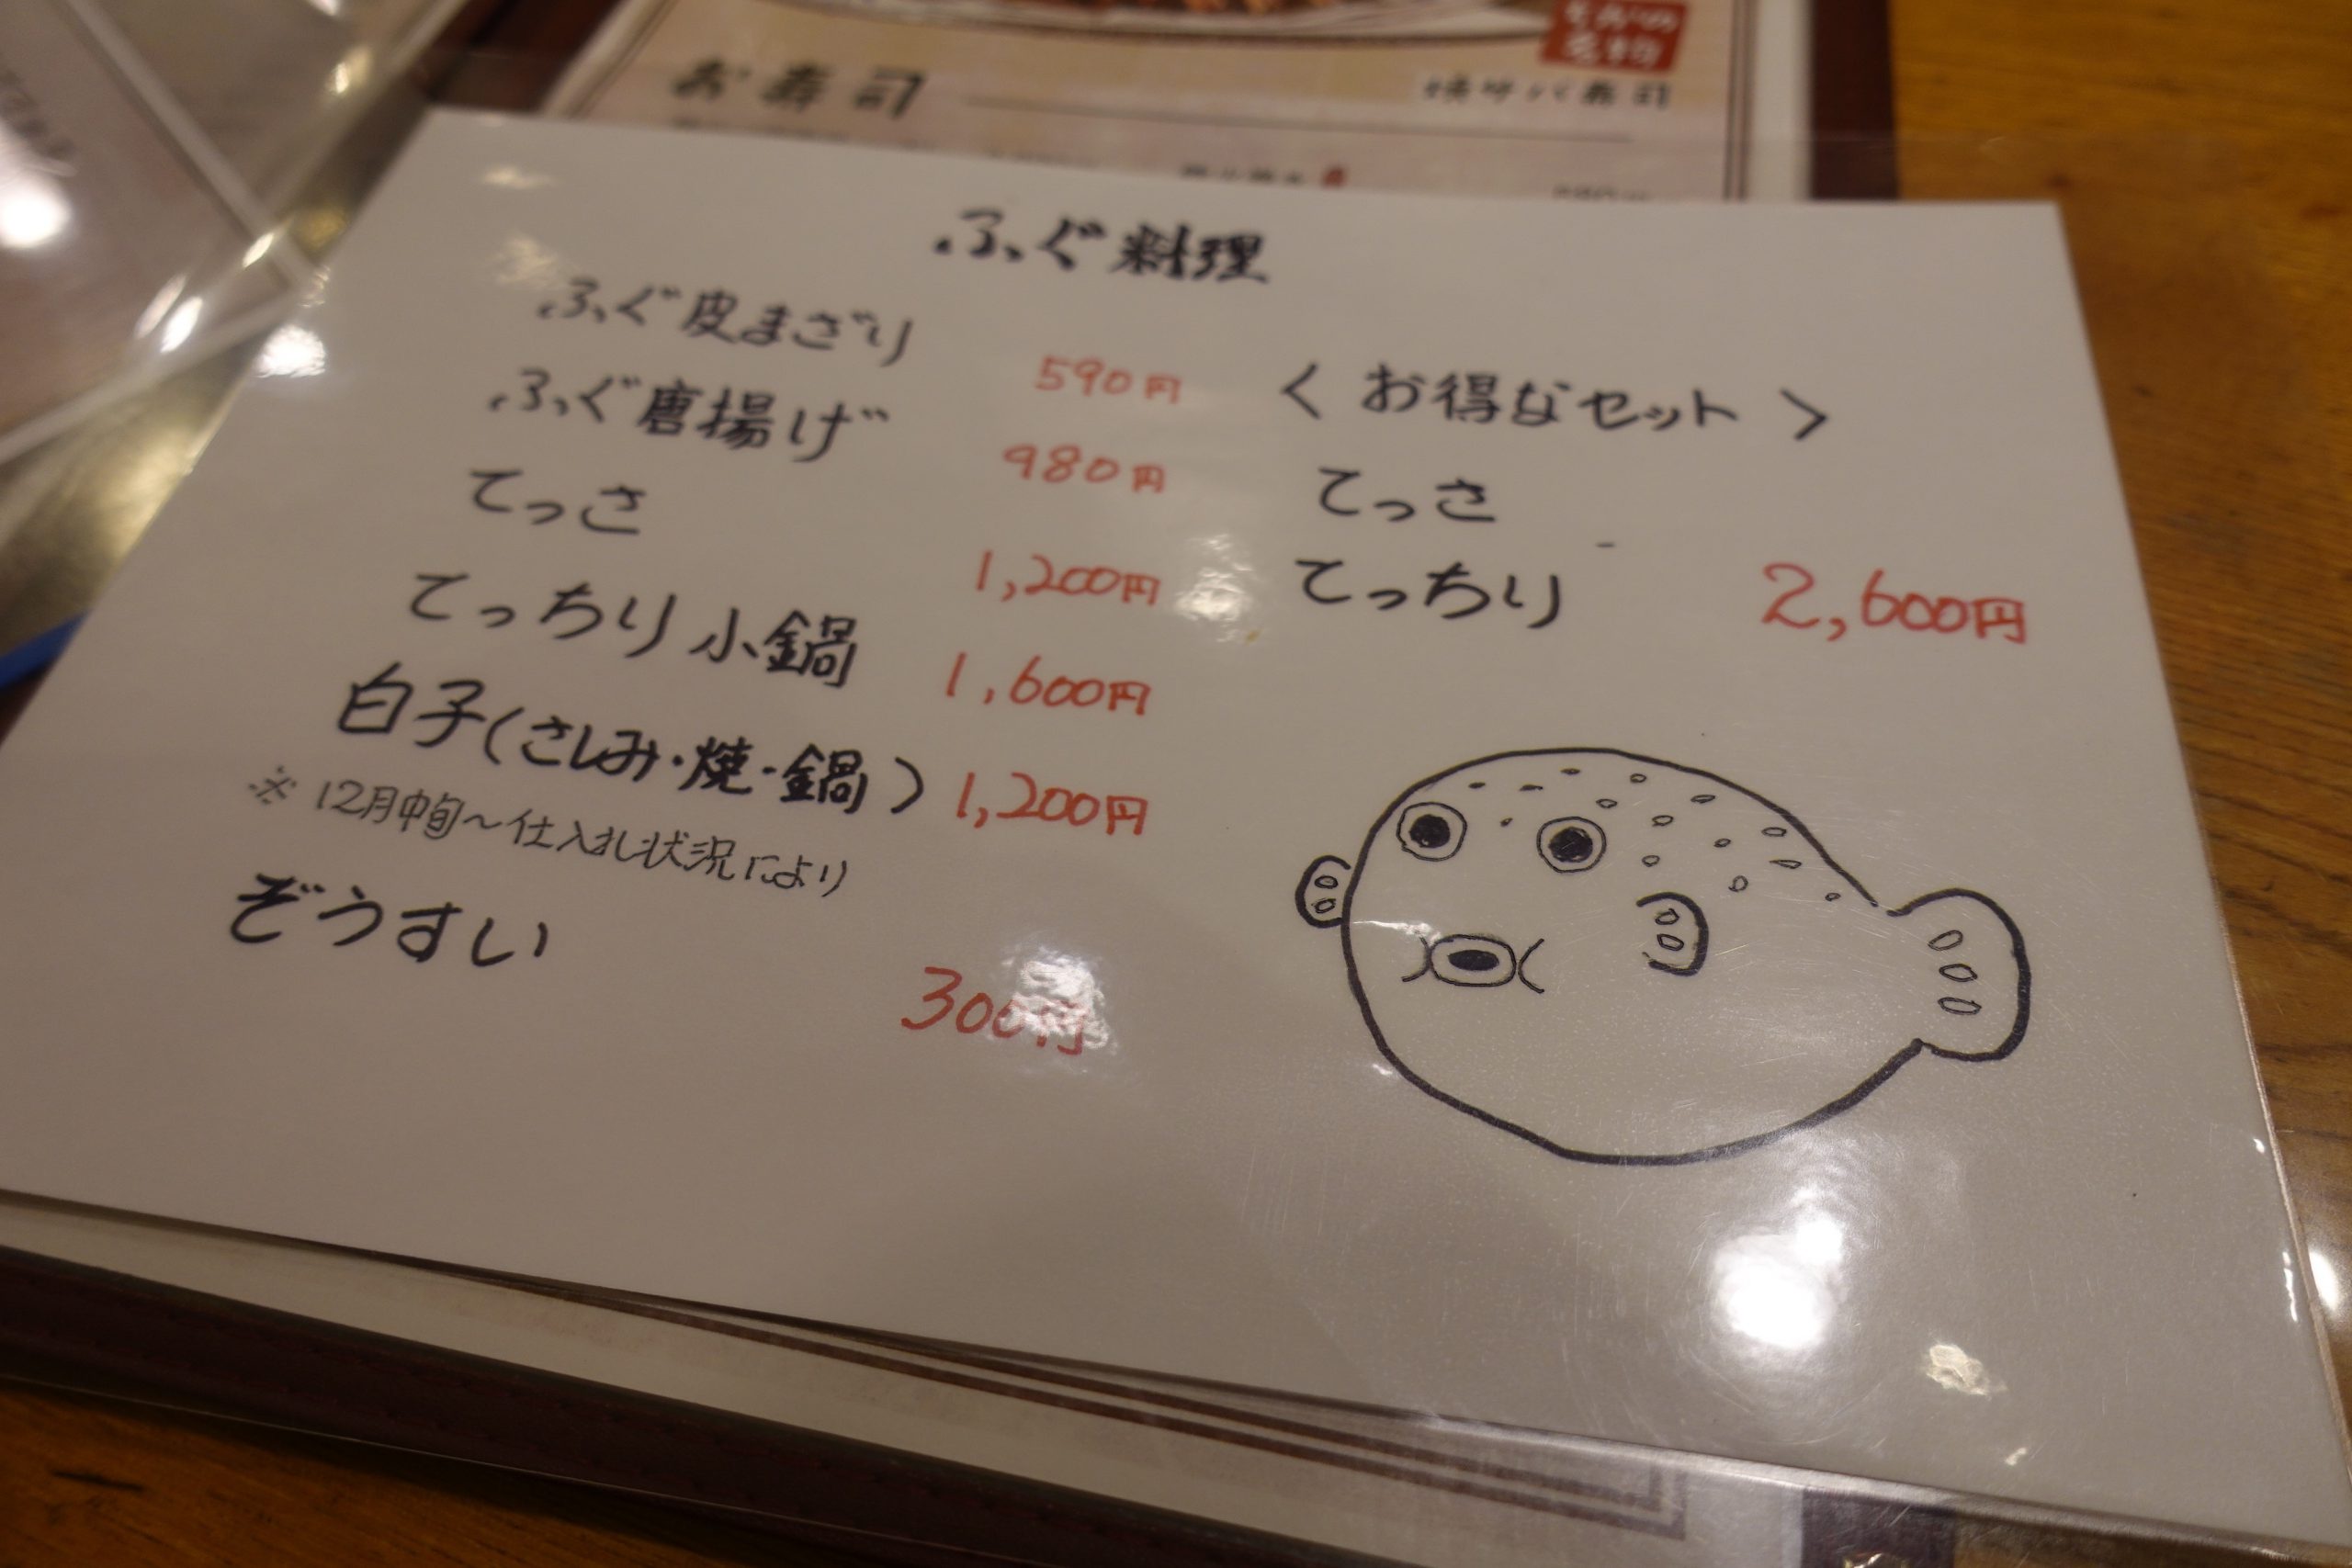 お寿司
焼サバ寿司
ふぐ料理
ふぐ皮まざり 590円
ふぐ唐揚げ 980円
てっさ 1,200円
てっちり小鍋 1,600円
白子(さしみ・焼・鍋) 1,200円
※12月中旬~仕入れ状況により
ぞうすい 300円
<お得なセット>
てっさ
てっちり 2,600円